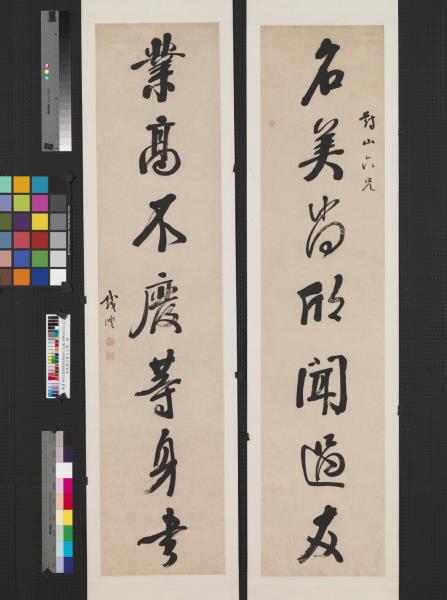 名美尚欣聞過友
山六兄
業高不廢等身書
錢灃